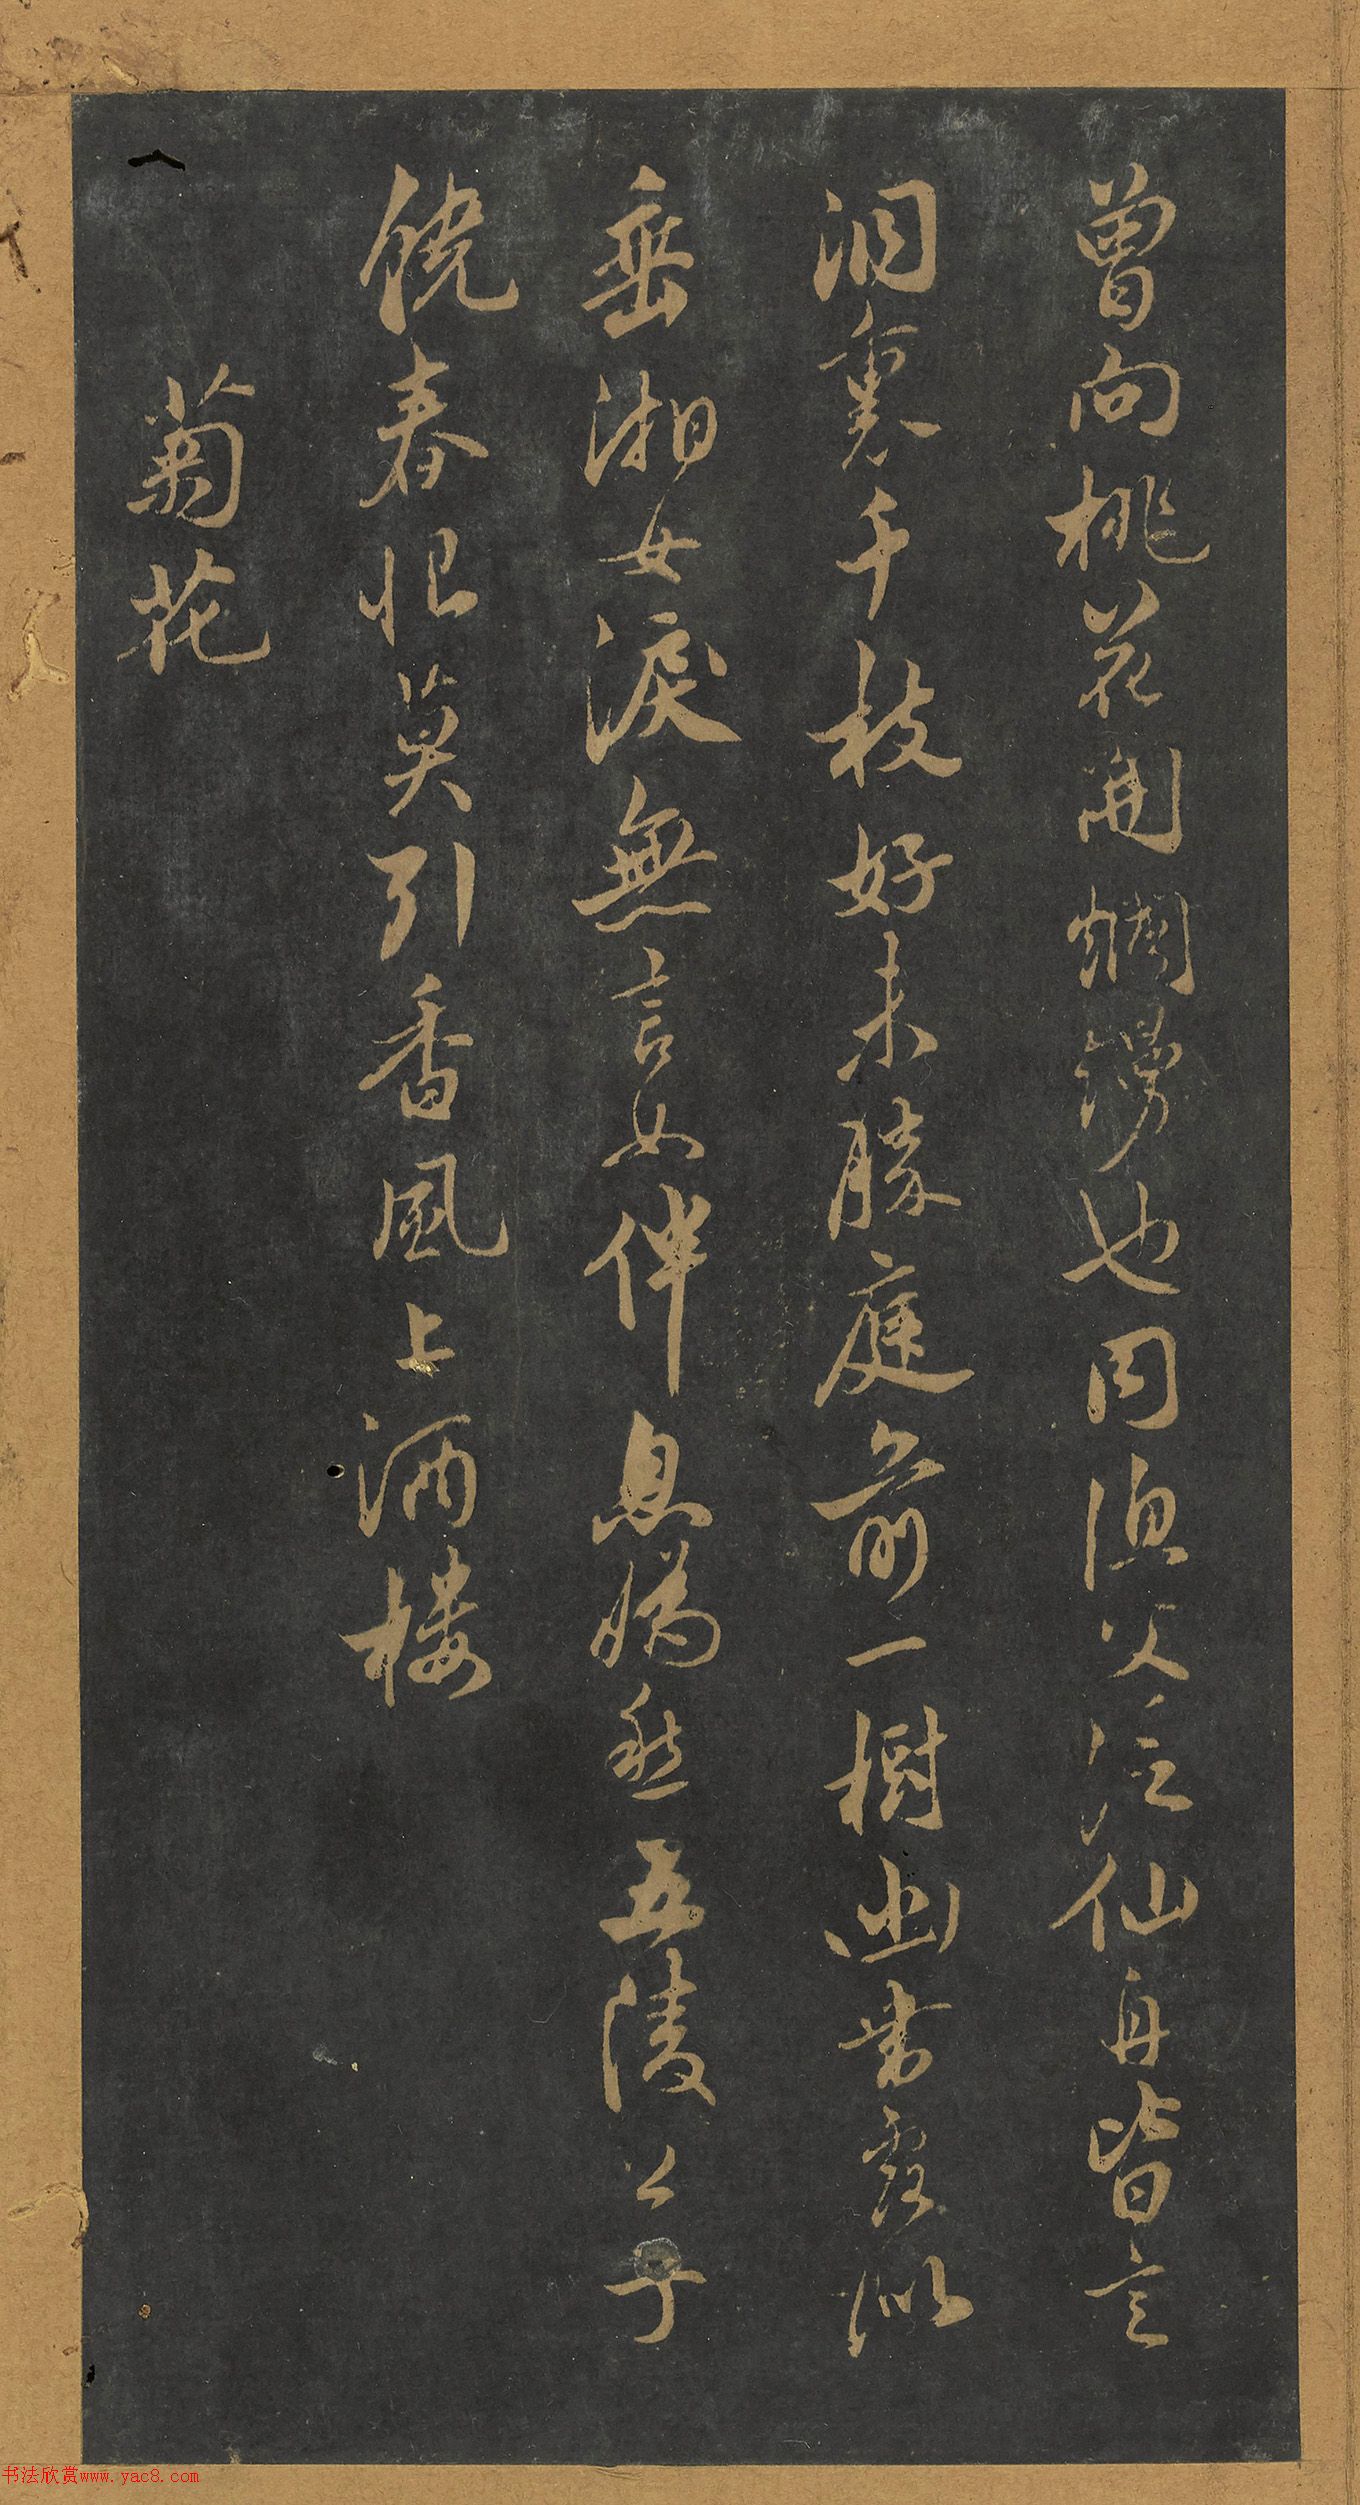 曾向桃花開爛漫也同漁父泛仙舟皆言
洞裏千枝好未勝庭前一樹幽帶露似
垂湘女淚無言如伴息媯愁五陵公子
饒春恨莫引香風上酒樓
菊花
书法欣赏www.yac8.com